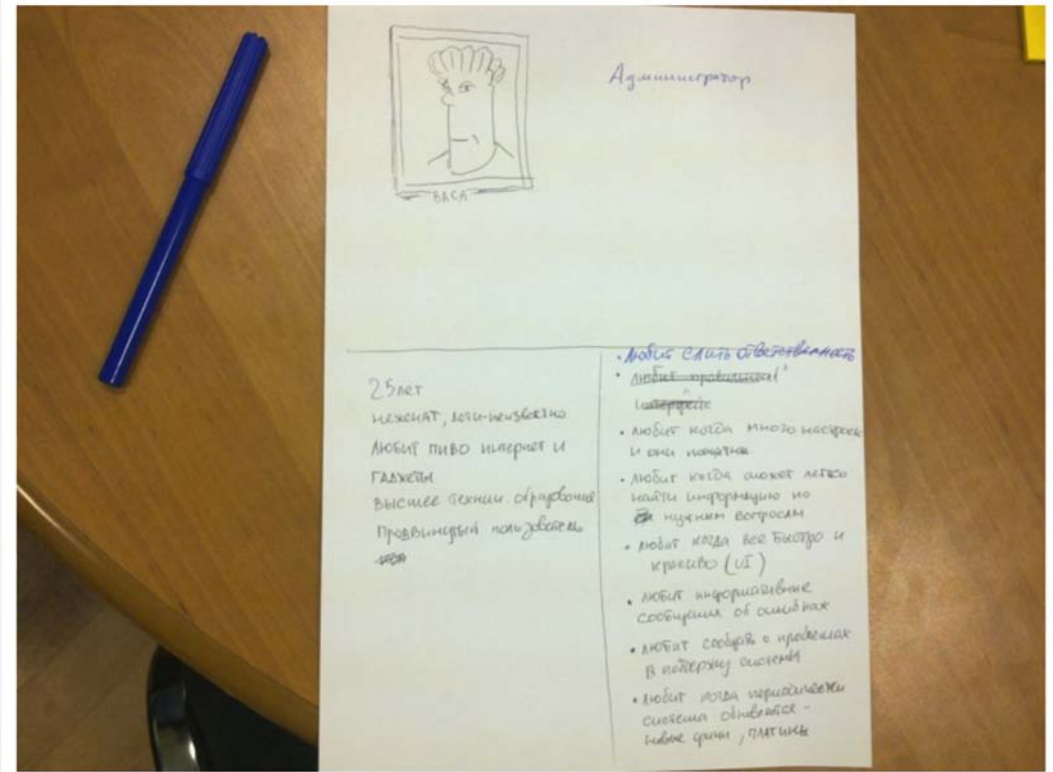 Администратор
ВАСЯ
25 лет
неженат, дети-неизвестно
любит пиво интернет и
гаджеты
высшее технич. образование
продвинутый пользователь
• любит слить ответственность
• любит правильный"
" интерфейс
• любит когда много настроек
и они понятны.
• любит когда может легко
найти информацию по
нужным вопросам
• любит когда все быстро и
красиво (UI)
• любит информативные
сообщения об ошибках
• любит сообщать о проблемах
в поддержку системы
• любит когда периодически
система обновляется -
новые фичи, плагины